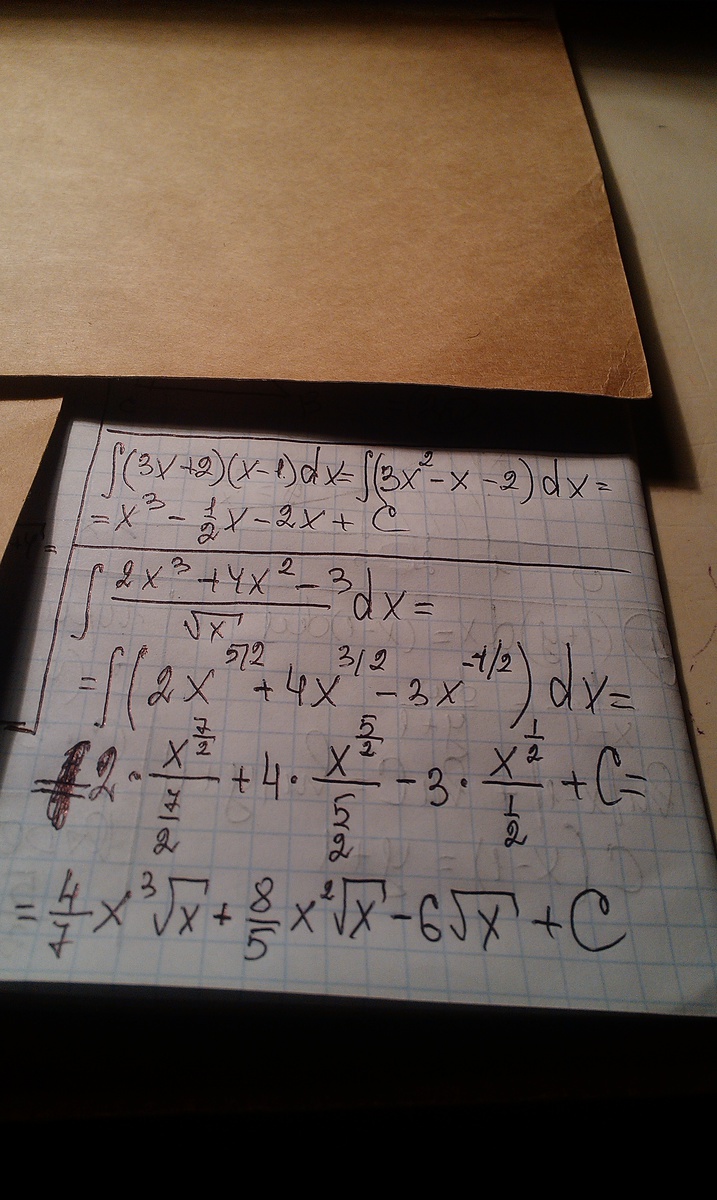 ∫(3x+2)(x-1)dx=∫(3x²-x-2)dx=
=x³-1/2x-2x+C
∫ (2x³+4x²-3)/√x dx=
=∫(2x^5/2+4x^3/2-3x^-1/2)dx=
2·x^(7/2)/(7/2)+4·x^(5/2)/(5/2)-3·x^(1/2)/(1/2)+C=
=4/7x³√x+8/5x²√x-6√x+C